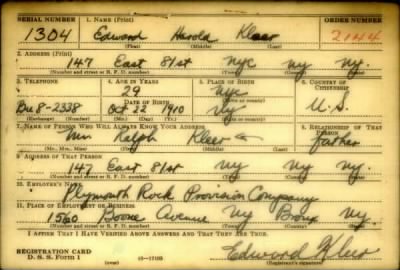 SERIAL NUMBER 1. NAME (Print) ORDER NUMBER
1304 Edward Harold Kleer 2144
(First) (Middle) (Last)
2. ADDRESS (Print)
147 East 81st NYC NY NY.
(Number and street or R. F. D. number) (Town) (County) (State)
3. TELEPHONE 4. AGE IN YEARS 5. PLACE OF BIRTH 6. COUNTRY OF CITIZENSHIP
29 NYC
DATE OF BIRTH (Town or county)
8-2338 Oct 22 1910 NY U.S.
(Exchange) (Number) (Mo.) (Day) (Yr.) (State or country)
7. NAME OF PERSON WHO WILL ALWAYS KNOW YOUR ADDRESS 8. RELATIONSHIP OF THAT PERSON
Mr. Ralph Kleer father
(Mr., Mrs., Miss) (First) (Middle) (Last)
9. ADDRESS OF THAT PERSON
147 East 81st NY NY NY
(Number and street or R. F. D. number) (Town) (County) (State)
10. EMPLOYER'S NAME
Plymouth Rock Provision Company
11. PLACE OF EMPLOYMENT OR BUSINESS
1560 Boone Avenue NY Bronx NY.
(Number and street or R. F. D. number) (Town) (County) (State)
I AFFIRM THAT I HAVE VERIFIED ABOVE ANSWERS AND THAT THEY ARE TRUE.
REGISTRATION CARD
D. S. S. FORM 1 (over) Edward Kleer
(Registrant's signature)